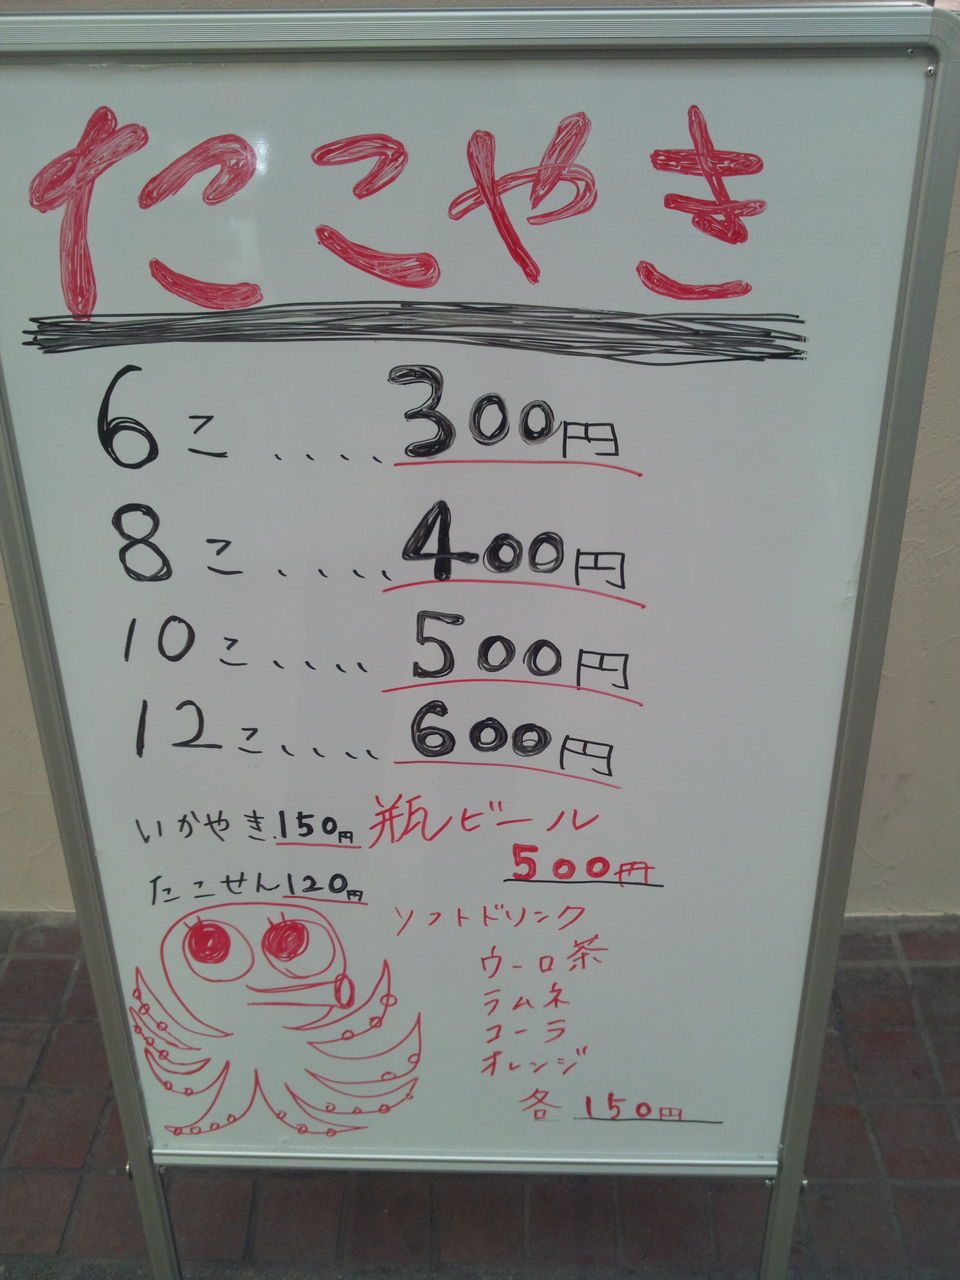 たこやき
6こ....300円
8こ....400円
10こ....500円
12こ....600円
いかやき.150円
たこせん120円
瓶ビール
500円
ソフトドリンク
ウーロ茶
ラムネ
コーラ
オレンジ
各 150円